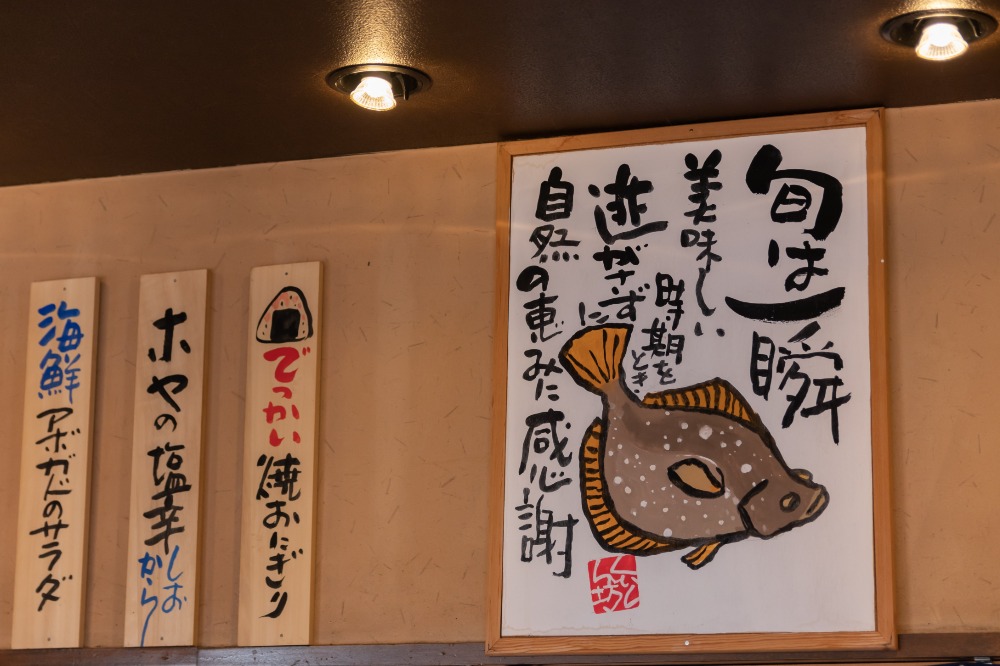 旬は一瞬
美味しい
時期を
とき
逃がさずに
自然の恵みに感謝
でっかい焼おにぎり
ホヤの塩辛
しおから
海鮮アボガドのサラダ